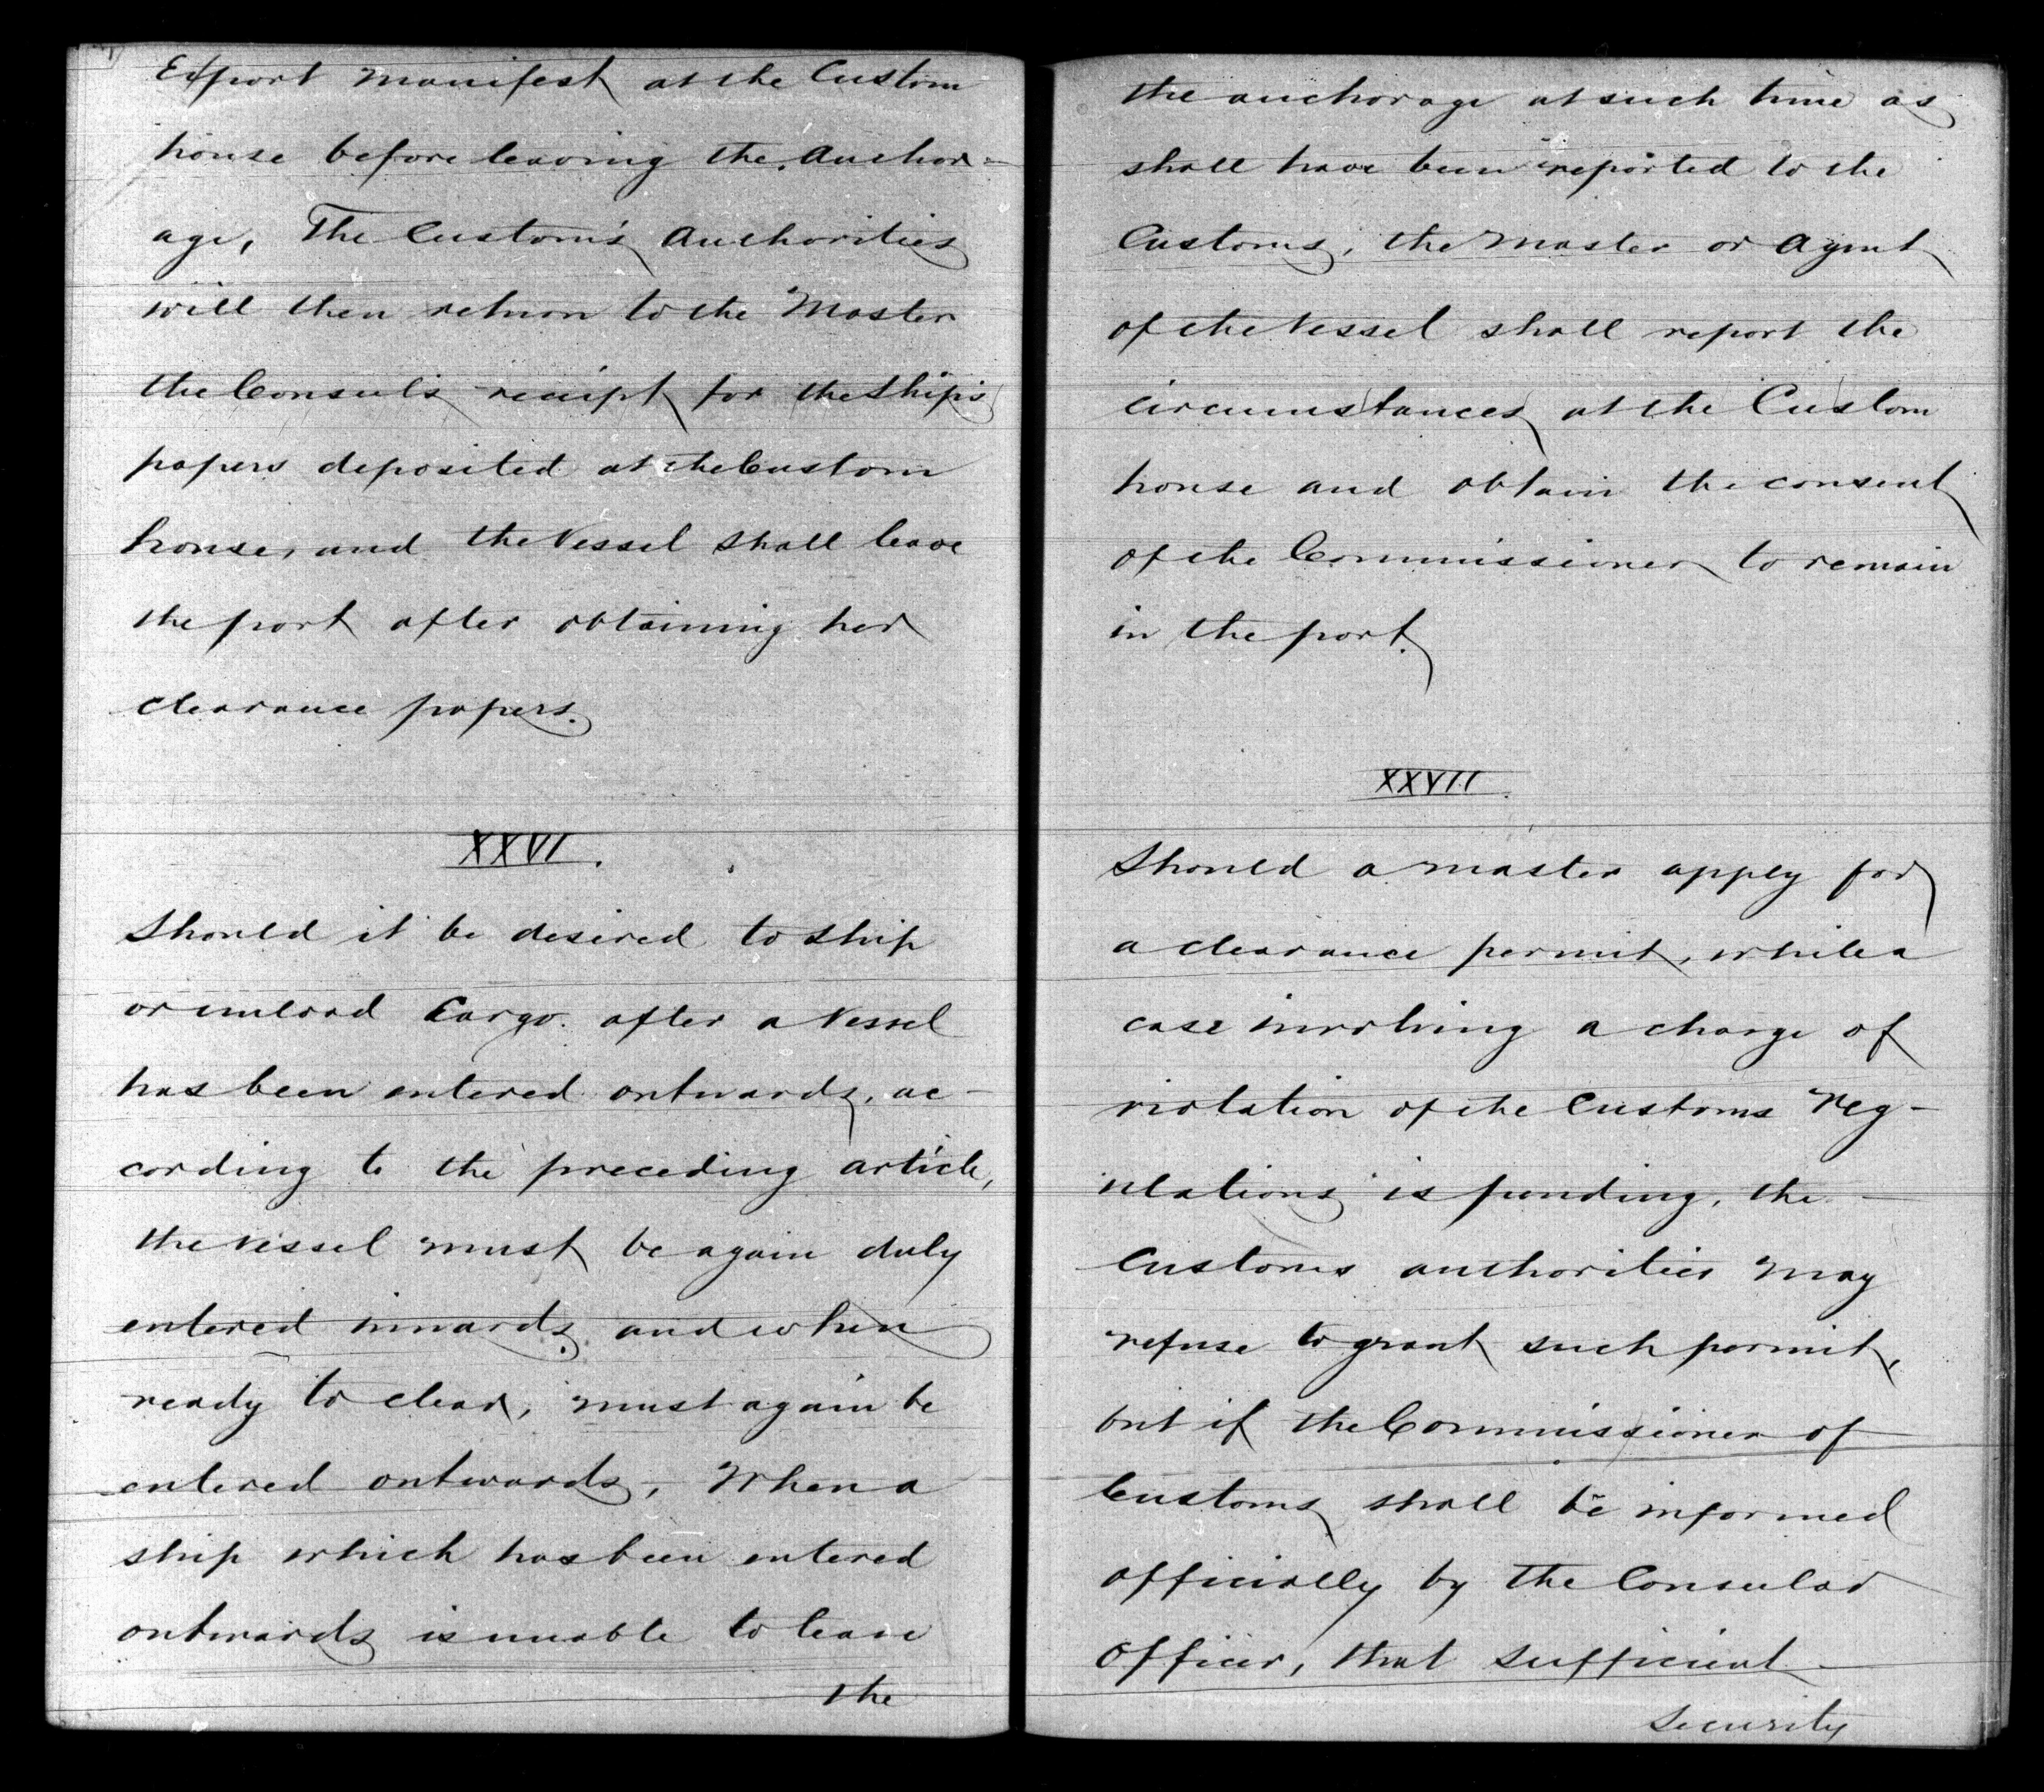 Export Manifest at the Custom
house before leaving the Anchor-
age, The Custom's Authorities
will then return to the Master
the Consul's receipt for the Ship's
papers deposited at the Custom
house, and the Vessel shall leave
the port after obtaining her
clearance papers.
XXVI.
Should it be desired to ship
or unload Cargo after a Vessel
has been entered outwards, ac-
cording to the preceding article,
the vessel must be again duly
entered inwards, and when
ready to clear, must again be
entered outwards, When a
ship which has been entered
outwards is unable to leave
the
the anchorage at such time as
shall have been reported to the
Customs, the Master or Agent
of the Vessel shall report the
circumstances at the Custom
house and obtain the consent
of the Commissioner to remain
in the port.
XXVII.
Should a master apply for
a clearance permit, while a
case involving a charge of
violation of the Customs reg-
ulations is pending, the
Customs authorities may
refuse to grant such permit,
but if the Commissioner of
Customs shall be informed
officially by the Consular
Officer, that sufficient
security